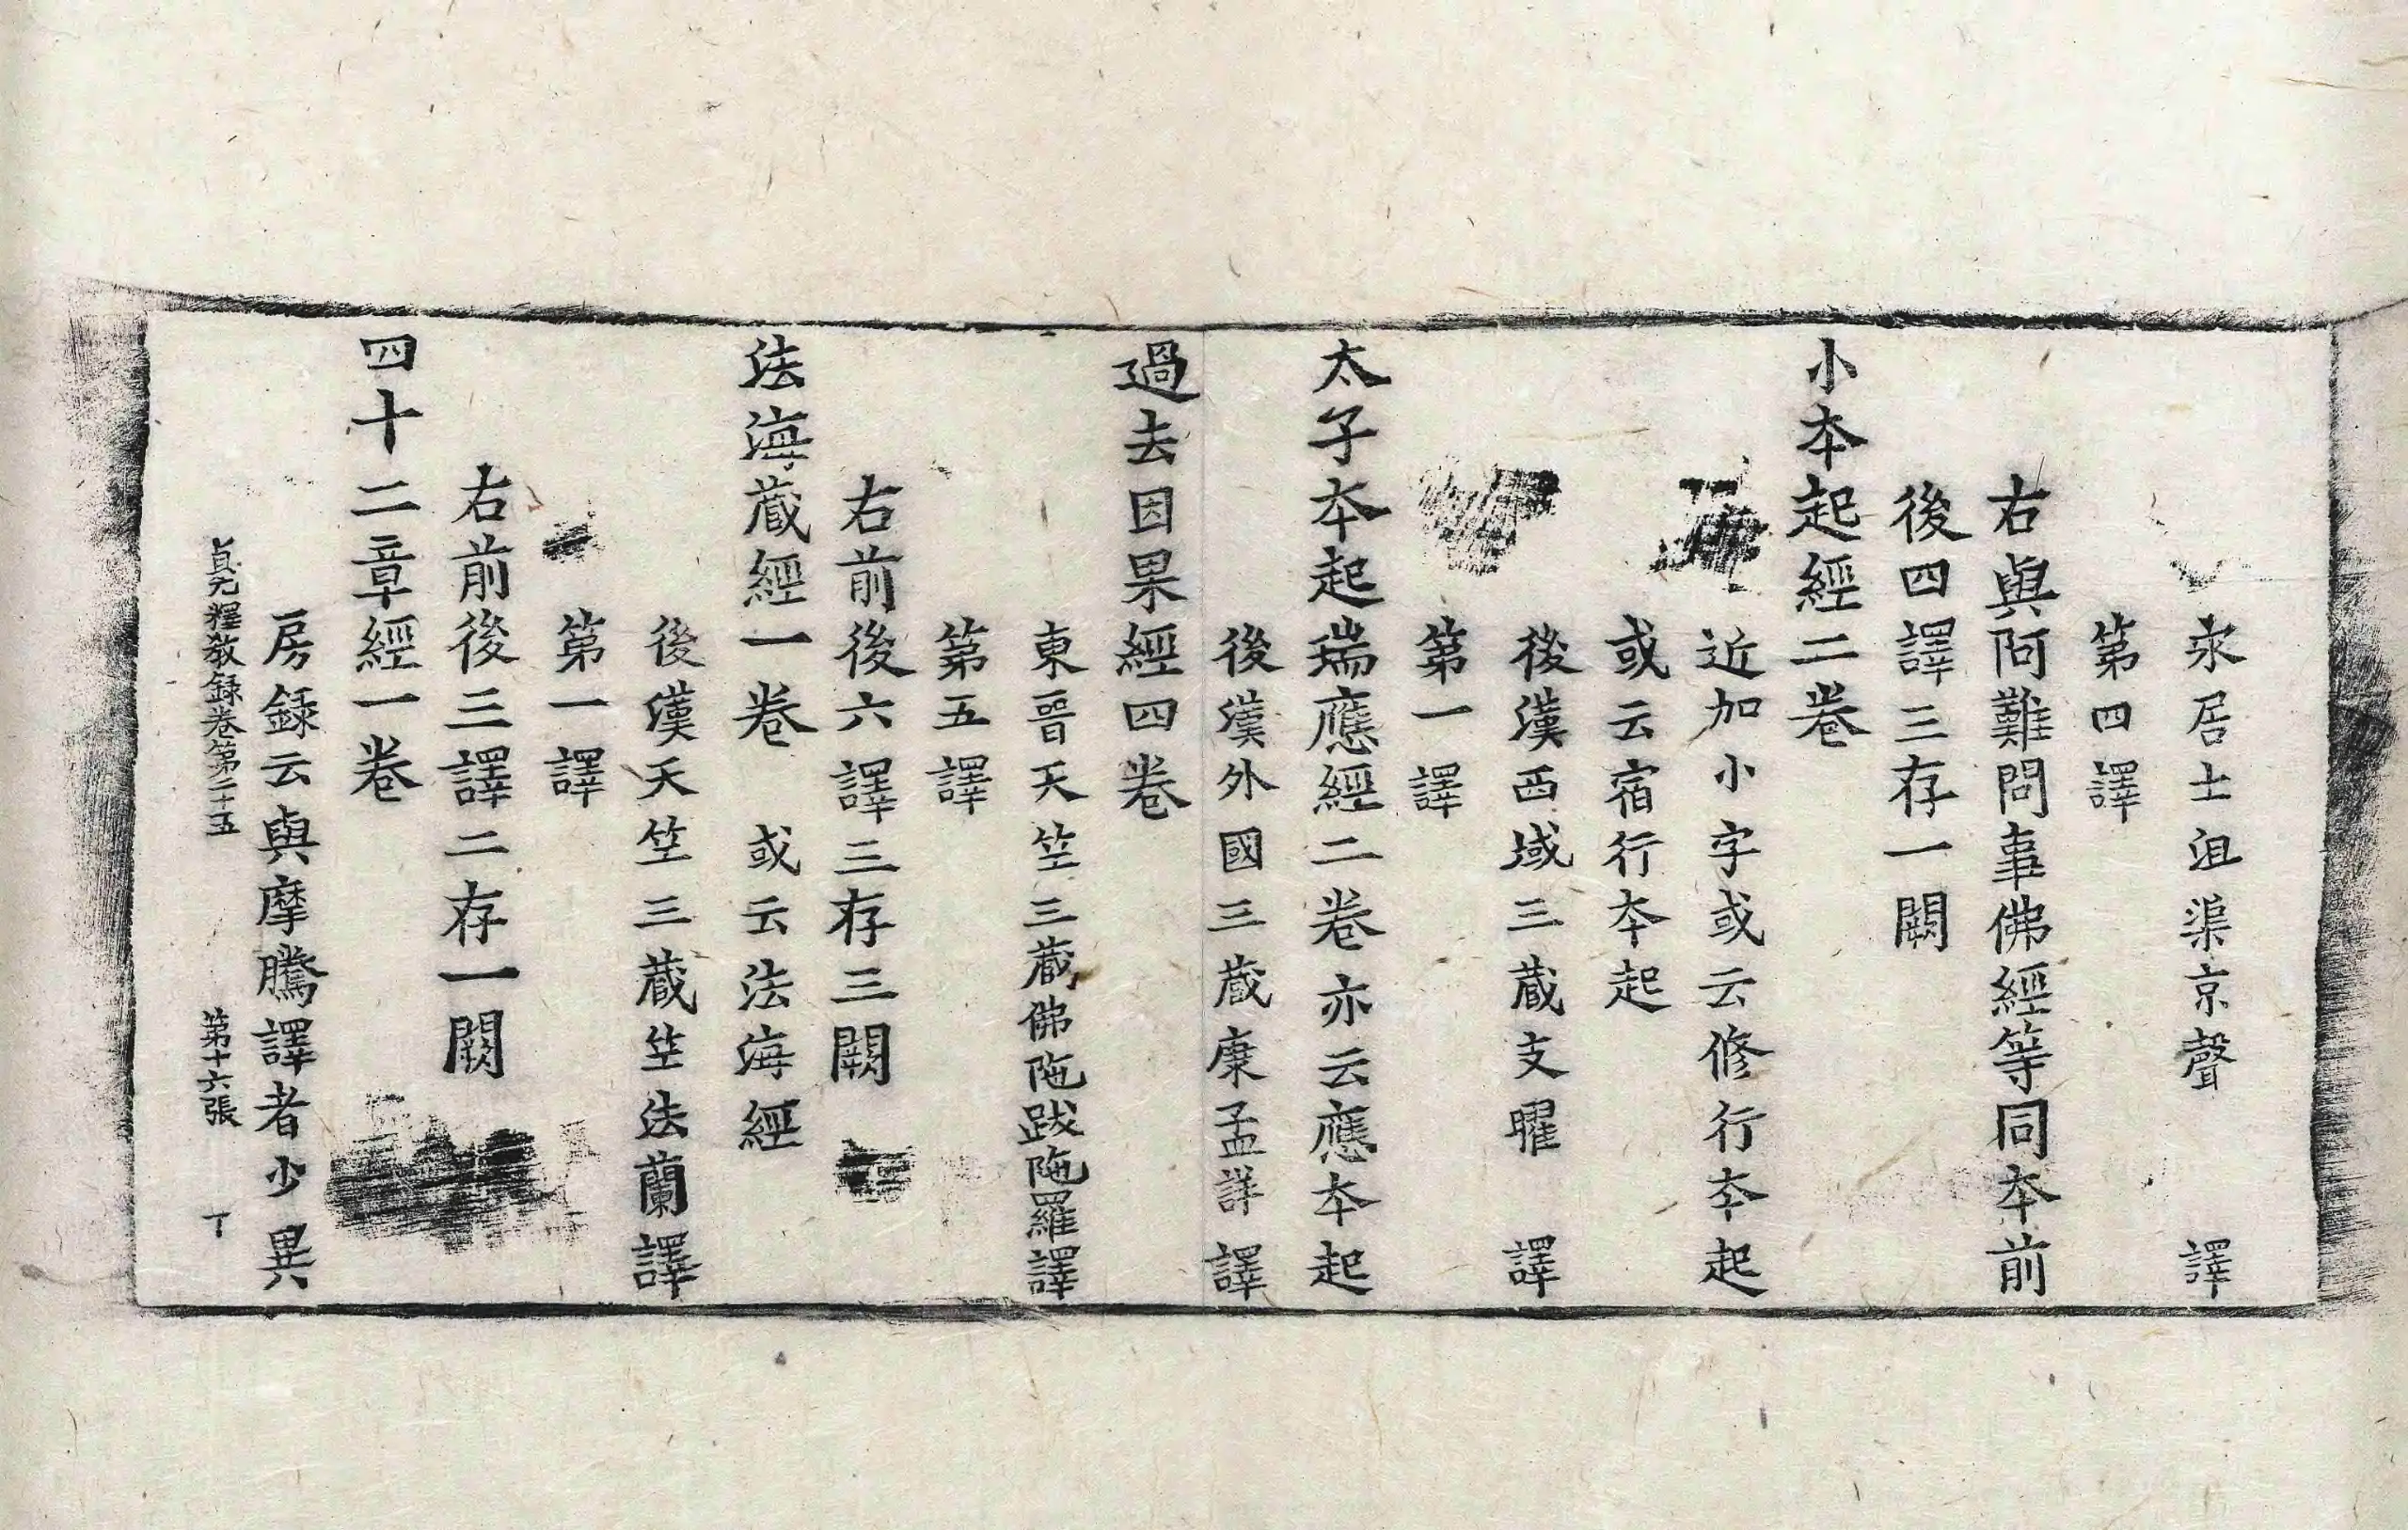 永居士沮渠京聲譯
第四譯
右與阿難問事佛經等同本前
後四譯三存一闕
小本起經二卷
近加小字或云修行本起
或云宿行本起
後漢西域三藏支曜譯
第一譯
太子本起瑞應經二卷亦云應本起
後漢外國三藏康孟詳譯
過去因果經四卷
東晉天竺三藏佛陁跋陁羅譯
第五譯
右前後六譯三存三闕
法海藏經一卷 或云法海經
後漢天竺三藏竺法蘭譯
第一譯
右前後三譯二存一闕
四十二章經一卷
房録云與摩騰譯者少異
貞元釋敎録卷第二十五 第十六張 丁